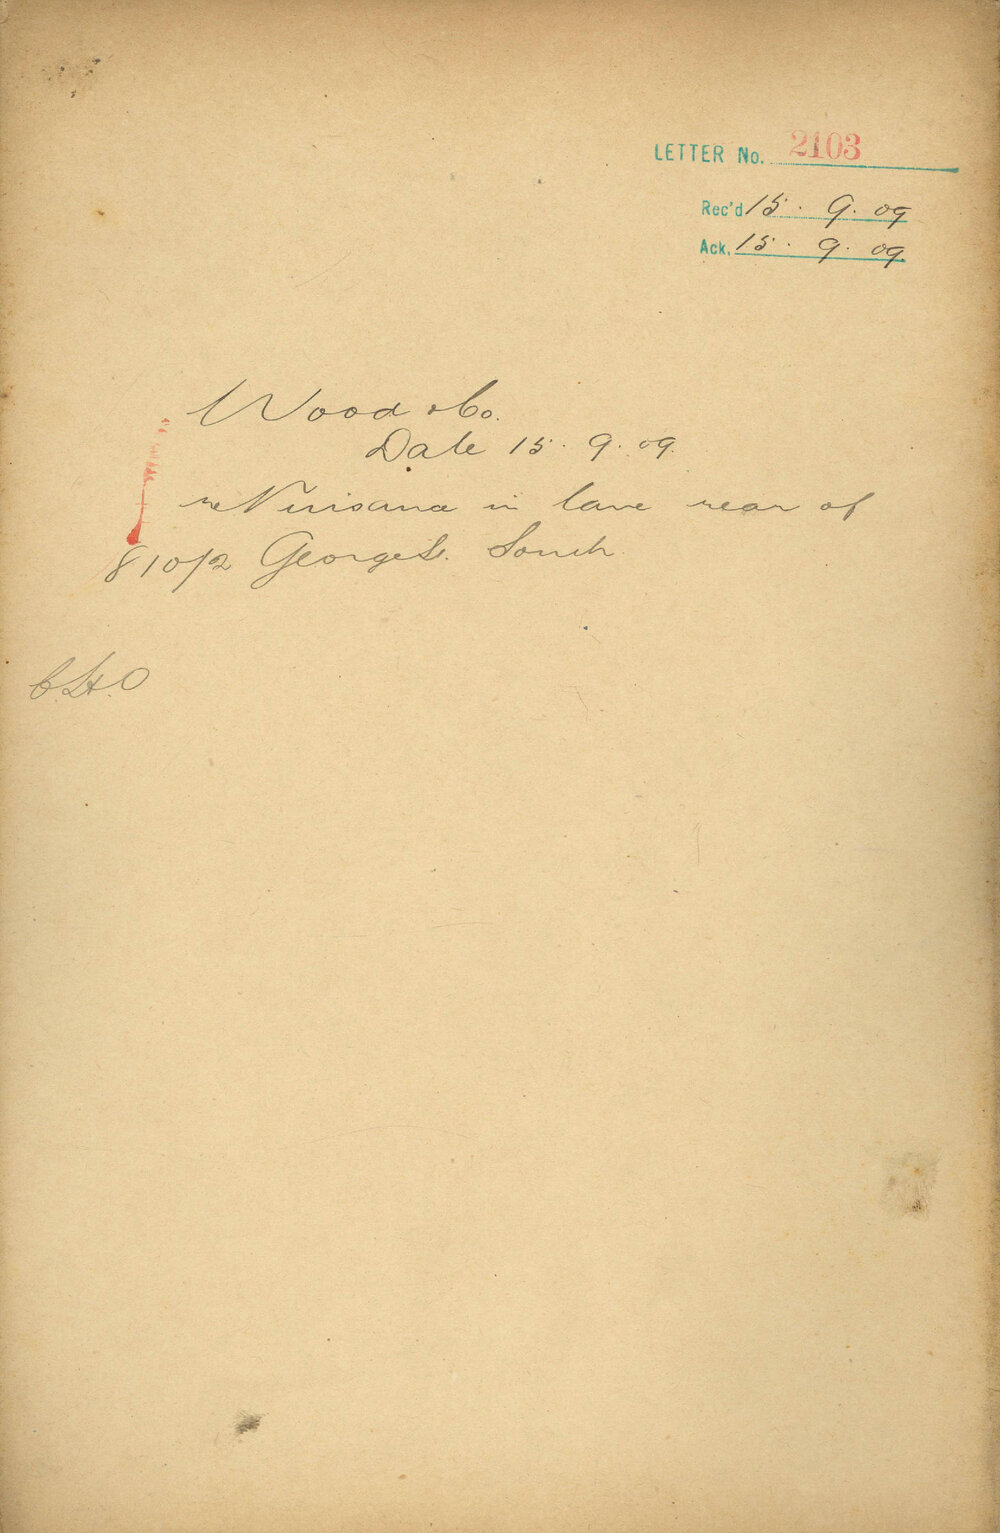 LETTER No. 2103
Rec'd 15 . 9 . 09
Ack. 15 . 9 . 09.
Wood & Co.
Date 15 . 9 . 09.
re Nuisance in lane rear of
810/2 George St. South